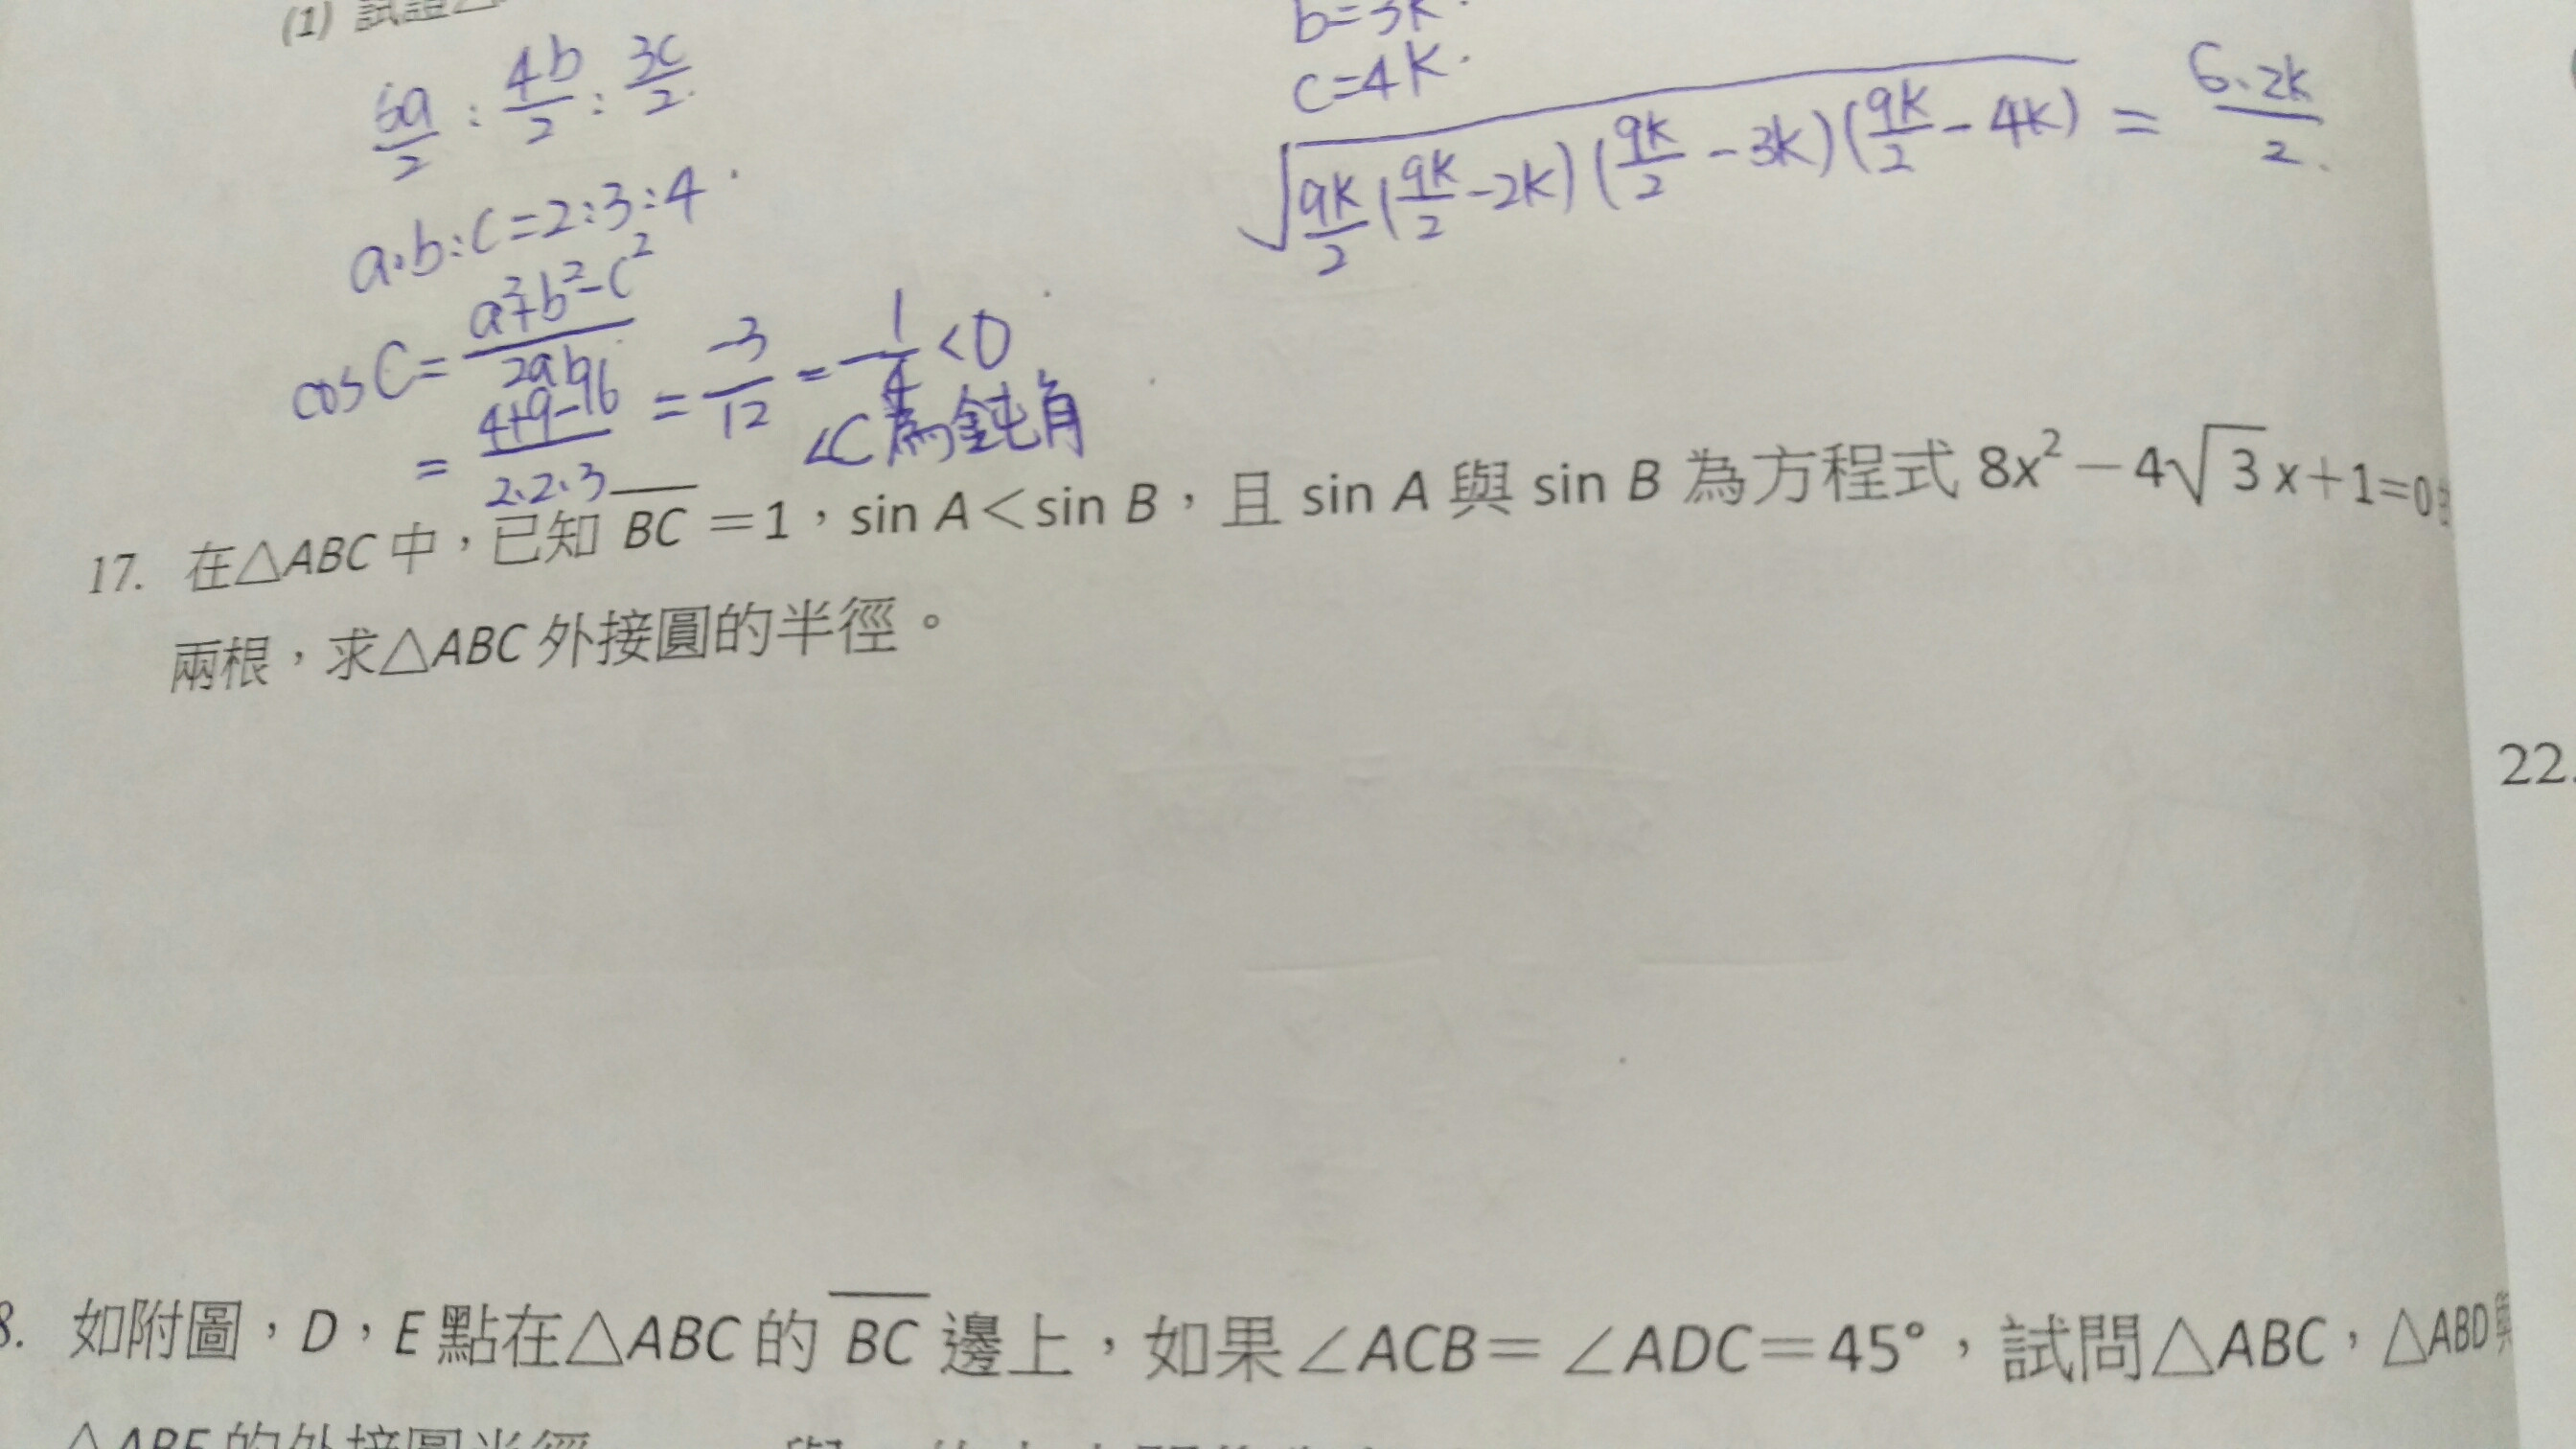 (1) 試證△
6a/2 : 4b/2 : 3c/2.
a:b:c=2:3:4.
cosC= a²+b²-c² / 2ab
= 4+9-16 / 2.2.3 = -3/12 = -1/4 <0
∠C為鈍角
b=3k.
c=4k.
√(9k/2 (9k/2 -2k) (9k/2 -3k) (9k/2 -4k)) = 6.2k / 2.
17. 在△ABC中,已知 BC=1,sin A<sin B,且 sin A 與 sin B 為方程式 8x²-4√3x+1=0的
兩根,求△ABC外接圓的半徑。
22.
8. 如附圖,D,E點在△ABC的BC邊上,如果∠ACB=∠ADC=45°,試問△ABC,△ABD與
△ABE的外接圓半徑